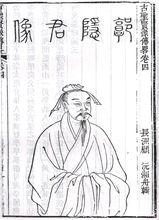 郭隱君像
古聖賢像傳略卷四
長洲顧 沅湘舟輯